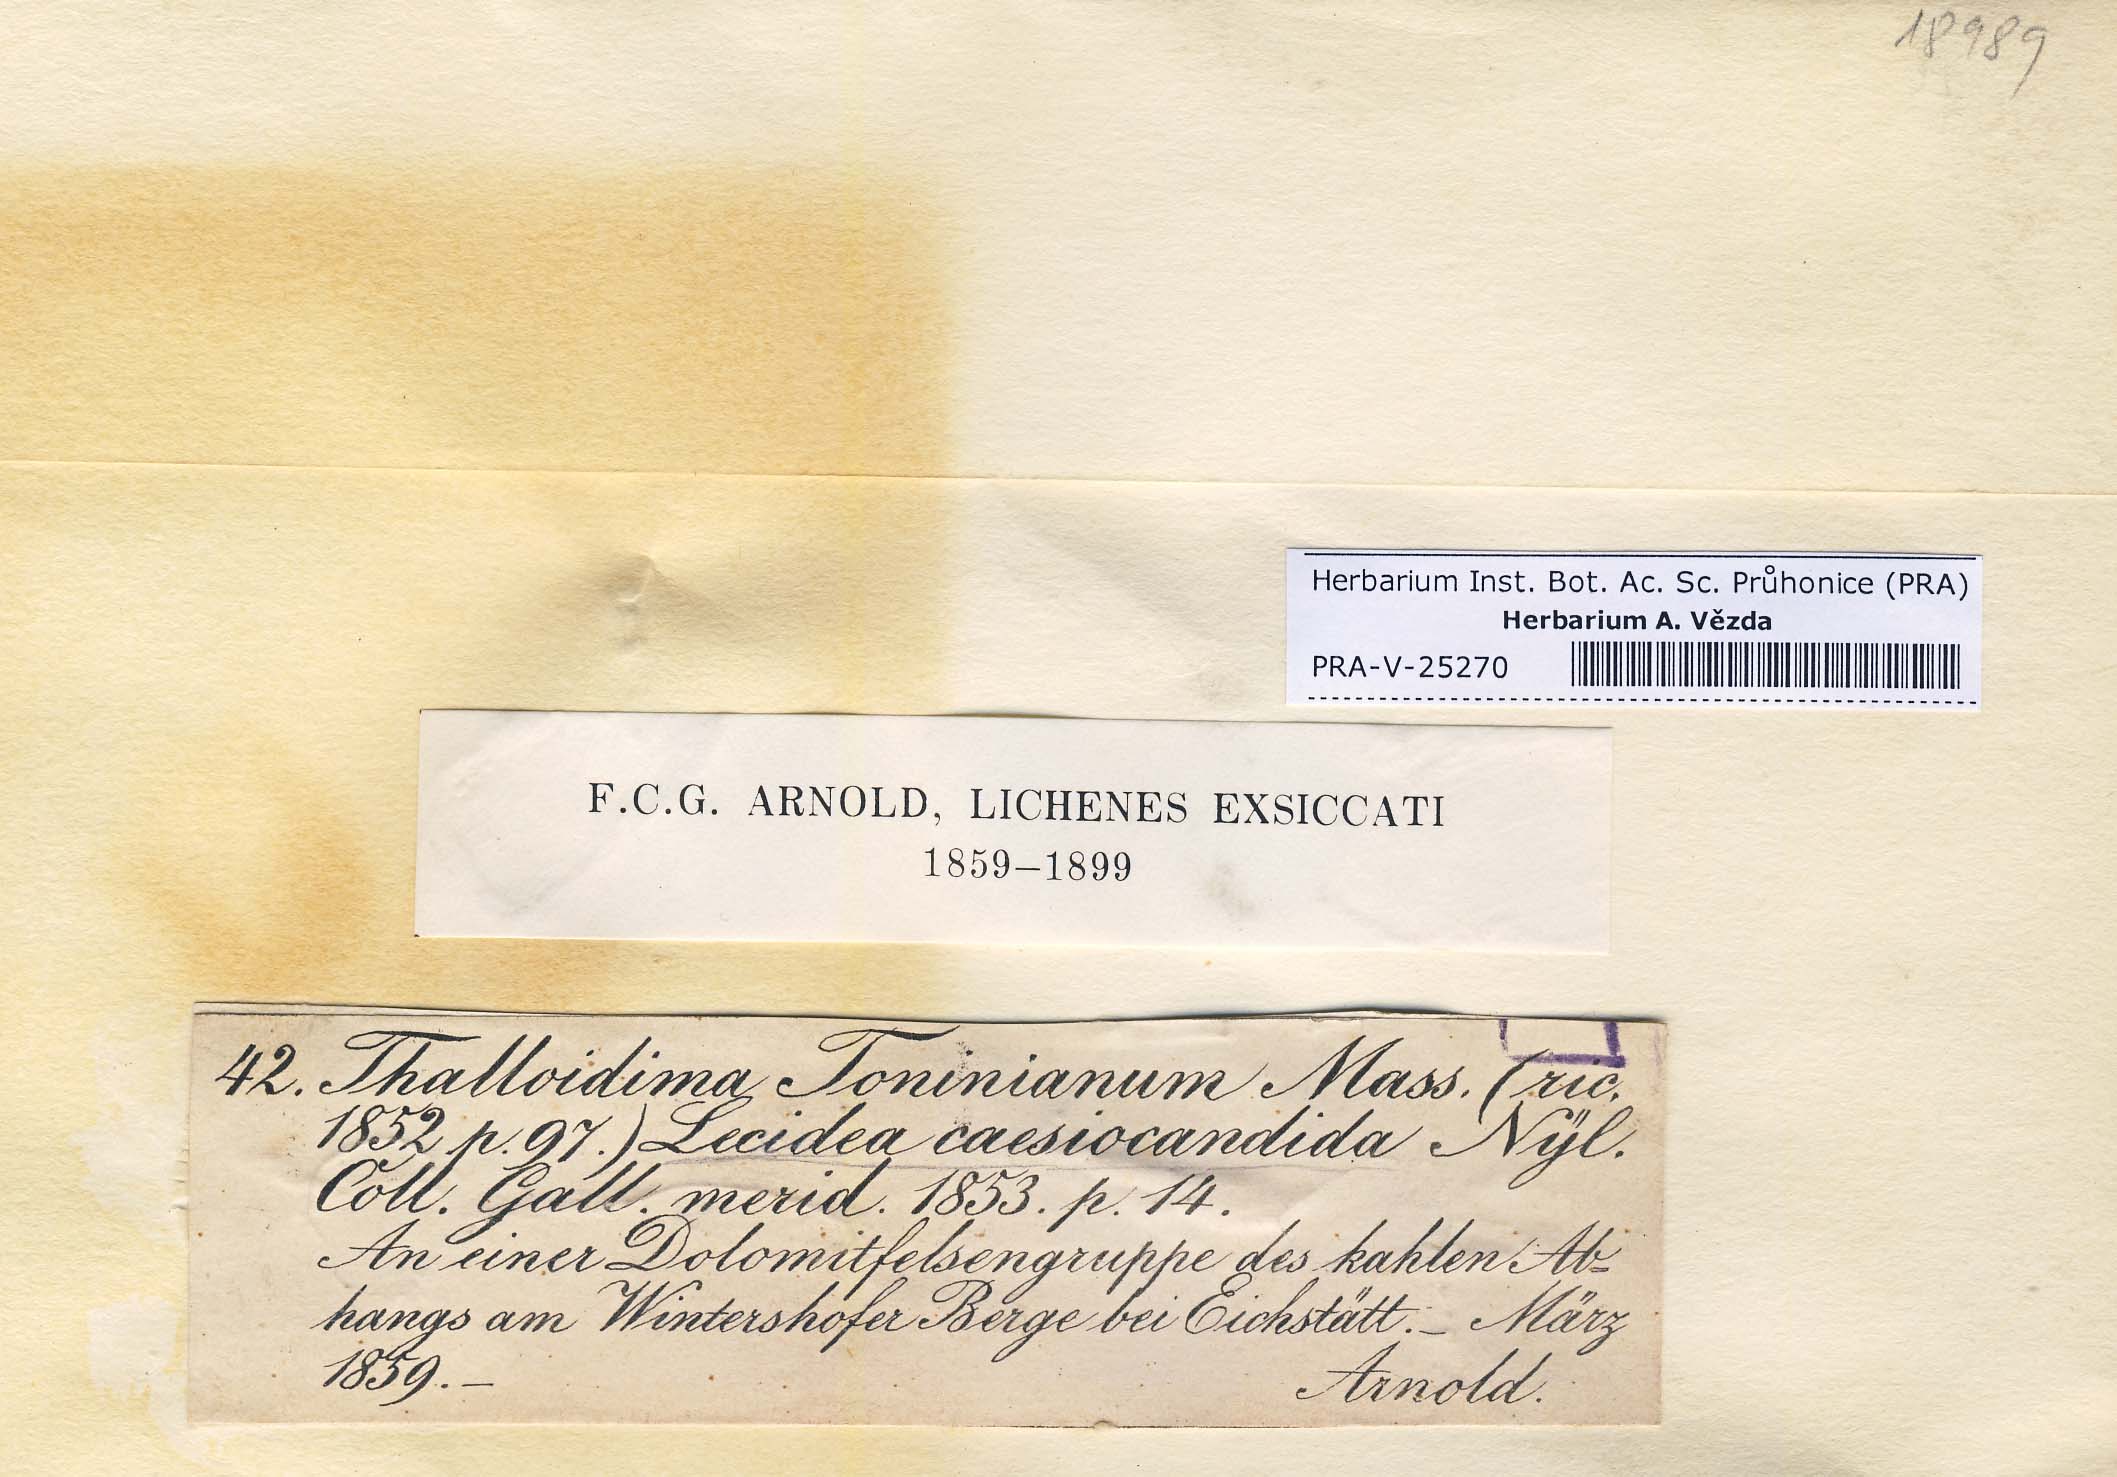 18989
Herbarium Inst. Bot. Ac. Sc. Průhonice (PRA)
Herbarium A. Vězda
PRA-V-25270
F.C.G. ARNOLD, LICHENES EXSICCATI
1859–1899
42. Thalloidima Toninianum Mass. (ric.
1852 p. 97.) Lecidea caesiocandida Nÿl.
Coll. Gall. merid. 1853. p. 14.
An einer Dolomitfelsengruppe des kahlen Ab=
hangs am Wintershofer Berge bei Eichstätt. – März
1859. –
Arnold.